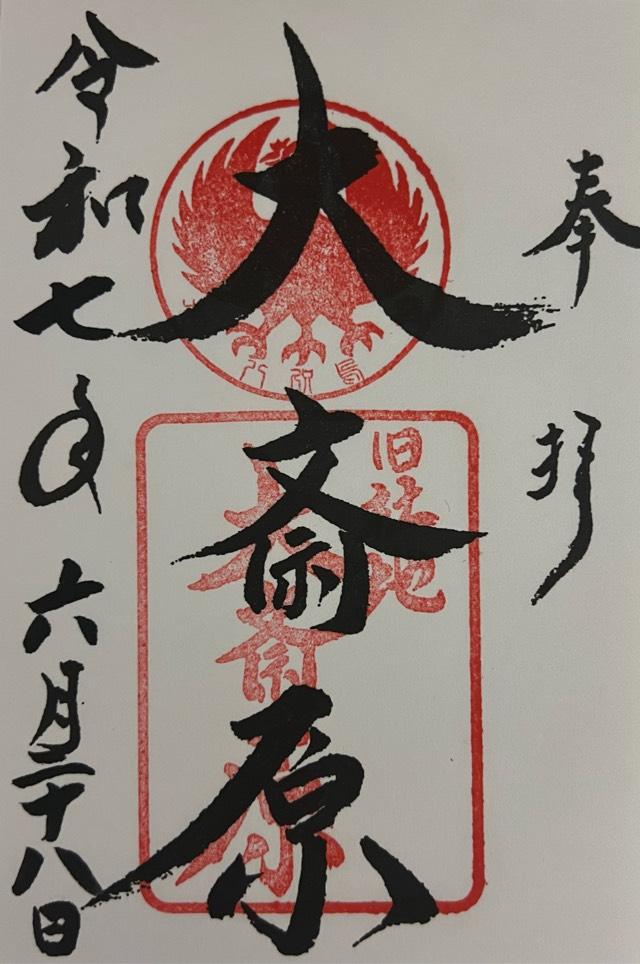 奉拝
大斎原
旧社地
大斎原
令和七年六月二十八日